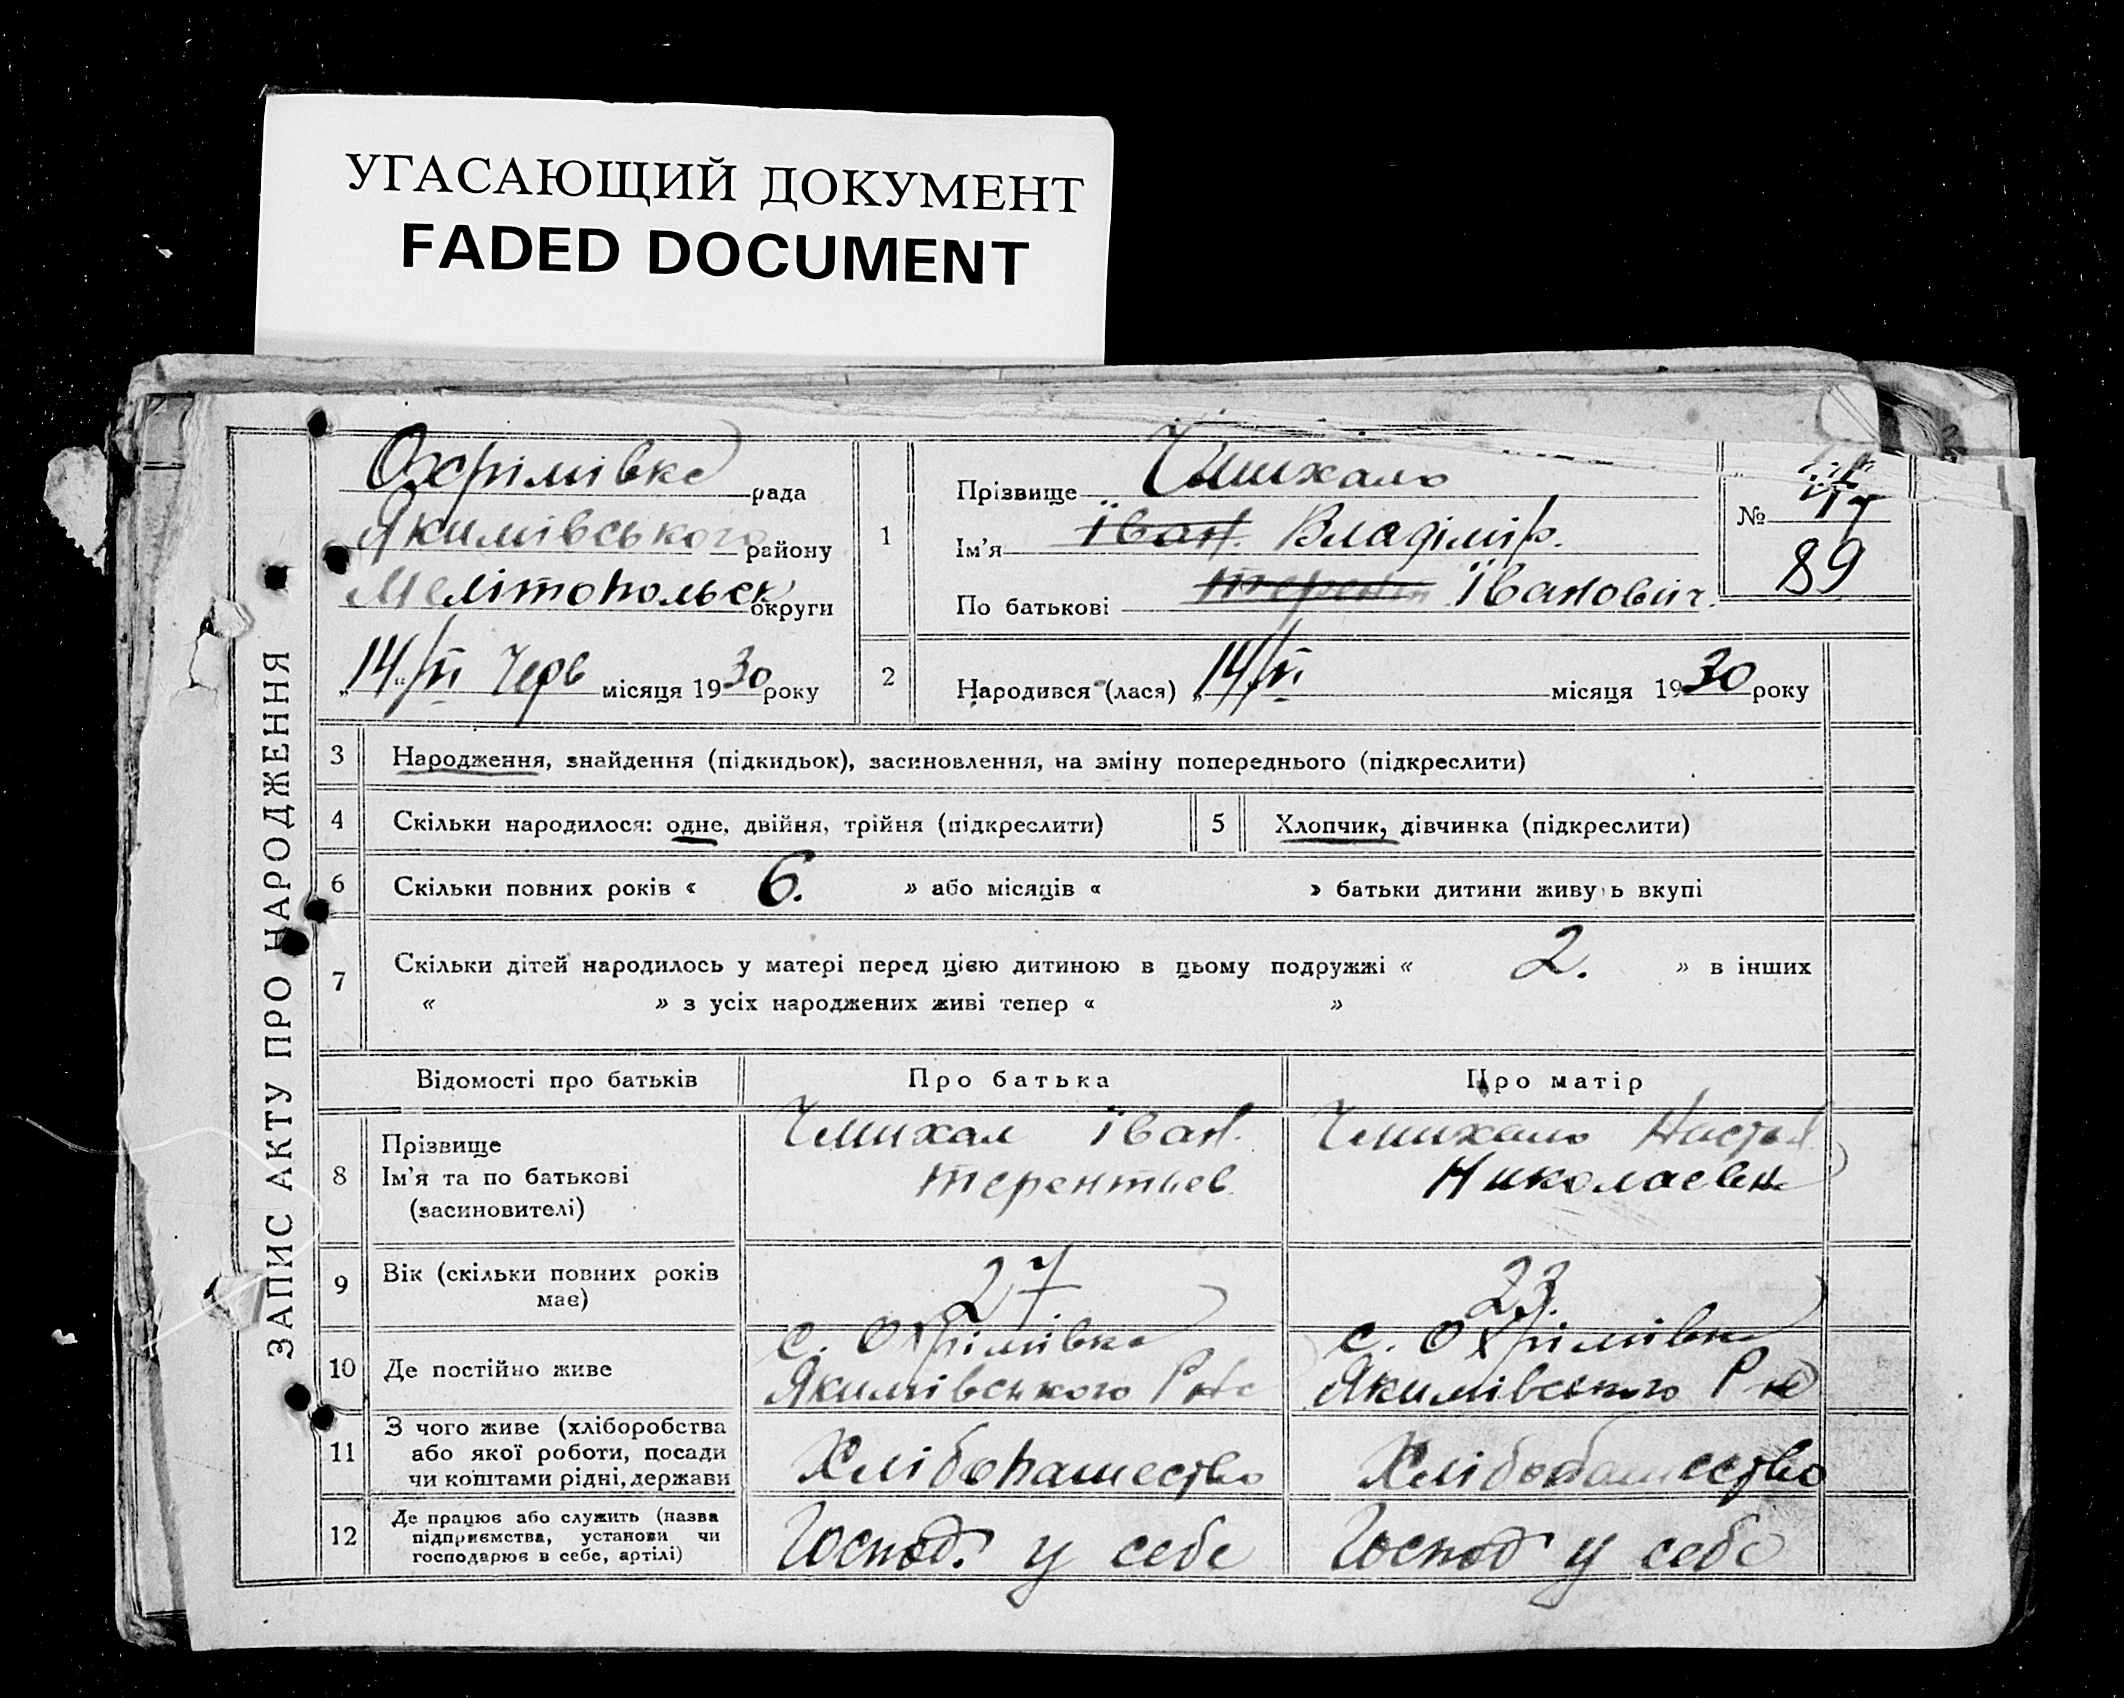 УГАСАЮЩИЙ ДОКУМЕНТ
FADED DOCUMENT
ЗАПИС АКТУ ПРО НАРОДЖЕННЯ
Охрімівка рада
Якимівського району
Мелітопольск округи
14/VI Черв місяця 1930 року
1
Прізвище Чмихало
Ім'я Іван Владімір.
По батькові Терент Івановіч.
№
89
2
Народився (лася) „14/VI місяця 1930 року
3 Народження, знайдення (підкидьок), засиновлення, на зміну попереднього (підкреслити)
4 Скільки народилося: одне, двійня, трійня (підкреслити)
5 Хлопчик, дівчинка (підкреслити)
6 Скільки повних років « 6. » або місяців « » батьки дитини живу ь вкупі
7 Скільки дітей народилось у матері перед цією дитиною в цьому подружжі « 2. » в інших
« » з усіх народжених живі тепер « »
Відомості про батьків
Про батька
Про матір
8 Прізвище
Ім'я та по батькові
(засиновителі)
Чмихал Іван.
Терентьев
Чмихало Настя
Николаевн
9 Вік (скільки повних років
має)
27
23.
10 Де постійно живе
с. Охрімівка
Якимівського Рна
с. Охрімівка
Якимівського Рн
11 З чого живе (хліборобства
або якої роботи, посади
чи коштами рідні, держави
Хлібопашество
Хлібопашество
12 Де працює або служить (назва
підприємства, установи чи
господарює в себе, артілі)
Господ. у себе
Господ у себе